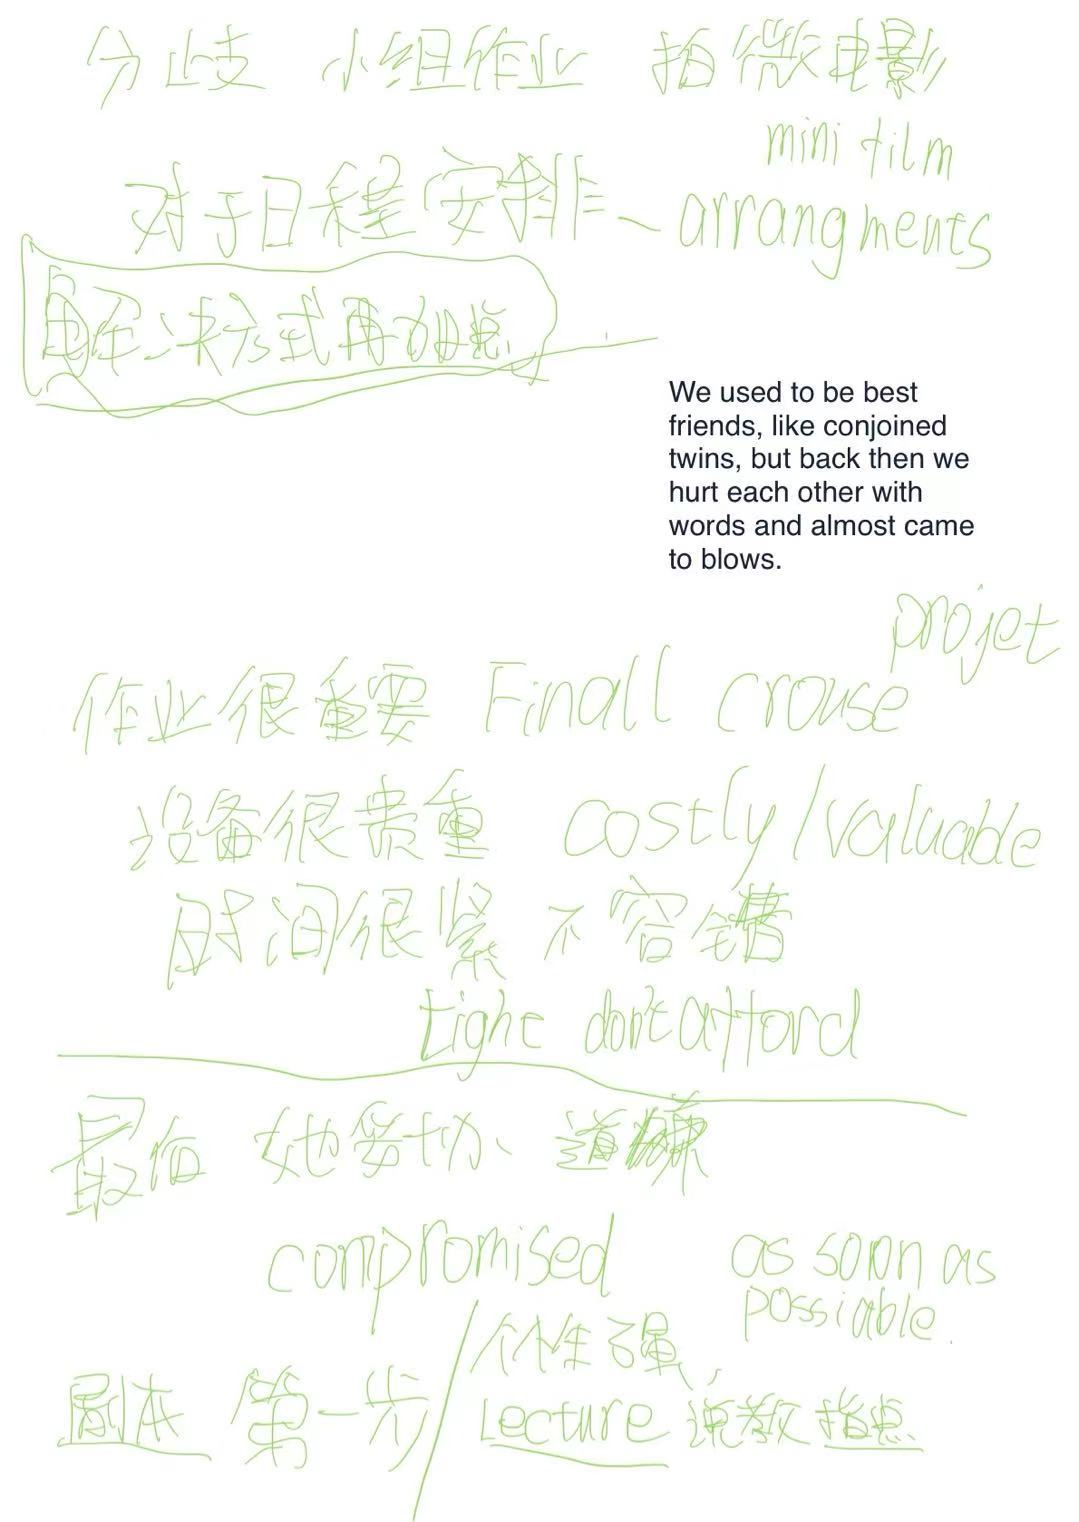 分歧 小组作业 拍微电影
mini film
对于日程安排 arrangments
解决方式再加点
We used to be best
friends, like conjoined
twins, but back then we
hurt each other with
words and almost came
to blows.
projet
作业很重要 Finall crouse
设备很贵重 costly/valuable
时间很紧 不容错
tight don't afford
最后 她妥协、道歉
compromised as soon as
possiable.
个性强
剧本 第一步 Lecture 说教 指点